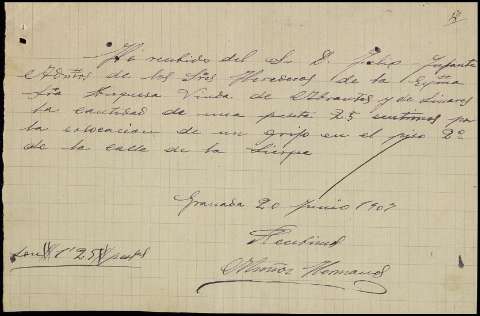 He recibido del Sr D. Felix Infante
Admor de los Sres Herederos de la Exma
Sra Duquesa Viuda de Abrantes y de Linares
la cantidad de una peseta 25 centimos por
la colocacion de un grifo en el piso 2º
de la calle de la Sierpe
Granada 20 Junio 1907
Recibimos
Muñoz Hermanos
Son 1'25 pesetas